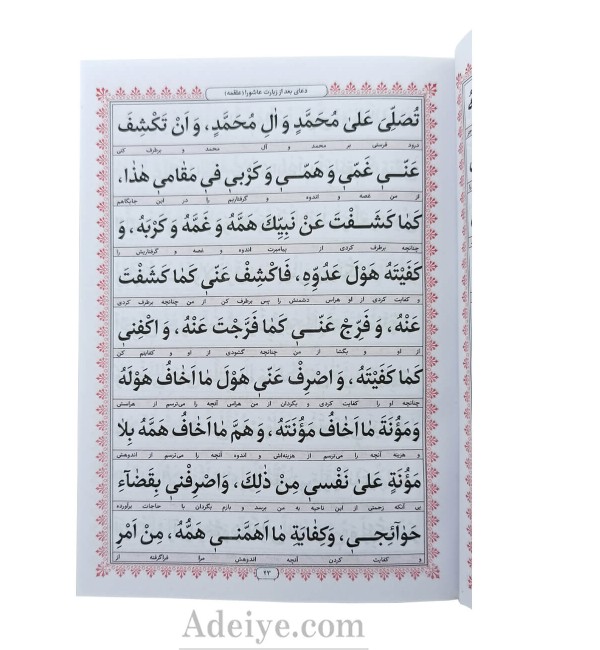 دعای بعد از زیارت عاشورا (علقمه)
تُصَلِّیَ عَلیٰ مُحَمَّدٍ وَ اٰلِ مُحَمَّدٍ، وَ اَنْ تَکْشِفَ
درود فرستی بر محمد و آل محمد و برطرف کنی
عَنّـــی غَمّی وَ هَمّـــی وَ کَرْبی فی مَقامی هٰذا،
از من غصه و اندوه و گرفتاریم را در این جایگاهم
کَمٰا کَشَـــفْتَ عَنْ نَبِیِّكَ هَمَّهُ وَ غَمَّهُ وَ کَرْبَهُ، وَ
چنانچه برطرف کردی از پیامبرت اندوه و غصه و گرفتاریش را
کَفَیْتَهُ هَوْلَ عَدُوِّهِ، فَاکْشِفْ عَنّی کَمٰا کَشَفْتَ
و کفایت کردی از او هراس دشمنش را پس برطرف کن از من چنانچه برطرف کردی
عَنْهُ، وَ فَرِّجْ عَنّـــی کَمٰا فَرَّجْتَ عَنْهُ، وَ اکْفِنی
از او و بگشا از من چنانچه گشودی از او و کفایتم کن
کَمٰا کَفَیْتَهُ، وَ اصْرِفْ عَنّی هَوْلَ مٰا اَخٰافُ هَوْلَهُ
چنانچه او را کفایت کردی و بگردان از من هراس آنچه را می‌ترسم از هراسش
وَ مَؤُنَةَ مٰا اَخٰافُ مَؤُنَتَهُ، وَ هَمَّ مٰا اَخٰافُ هَمَّهُ بِلٰا
و هزینه آنچه را می‌ترسم از هزینه‌اش و اندوه آنچه را می‌ترسم از اندوهش
مَؤُنَةٍ عَلیٰ نَفْسی مِنْ ذٰلِكَ، وَاصْرِفْنی بِقَضٰٓاءِ
بی آنکه زحمتی از این ناحیه به من برسد و بازم بگردان با حاجات برآورده
حَوٰٓائِجـــی، وَکِفٰایَةِ مٰا اَهَمَّنـــی هَمُّهُ، مِنْ اَمْرِ
و کفایت کردن آنچه اندوهش مرا فراگرفته از
۲۳
Adeiye.com